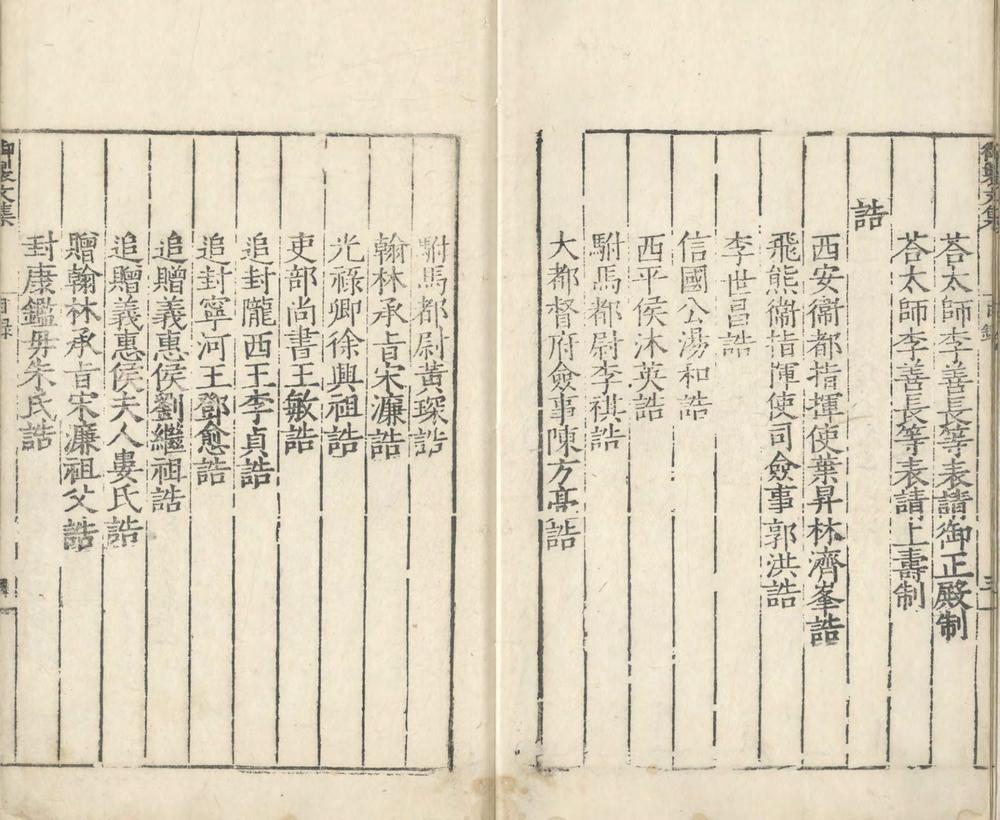 答太師李善長等表請御正殿制
答太師李善長等表請上壽制
誥
西安衞都指揮使葉昇林濟峯誥
飛熊衞指揮使司僉事郭洪誥
李世昌誥
信國公湯和誥
西平侯沐英誥
駙馬都尉李祺誥
大都督府僉事陳方亮誥
駙馬都尉黃琛誥
翰林承旨宋濂誥
光祿卿徐興祖誥
吏部尚書王敏誥
追封隴西王李貞誥
追封寧河王鄧愈誥
追贈義惠侯劉繼祖誥
追贈義惠侯夫人婁氏誥
贈翰林承旨宋濂祖父誥
封康鑑母朱氏誥
御製文集
目録